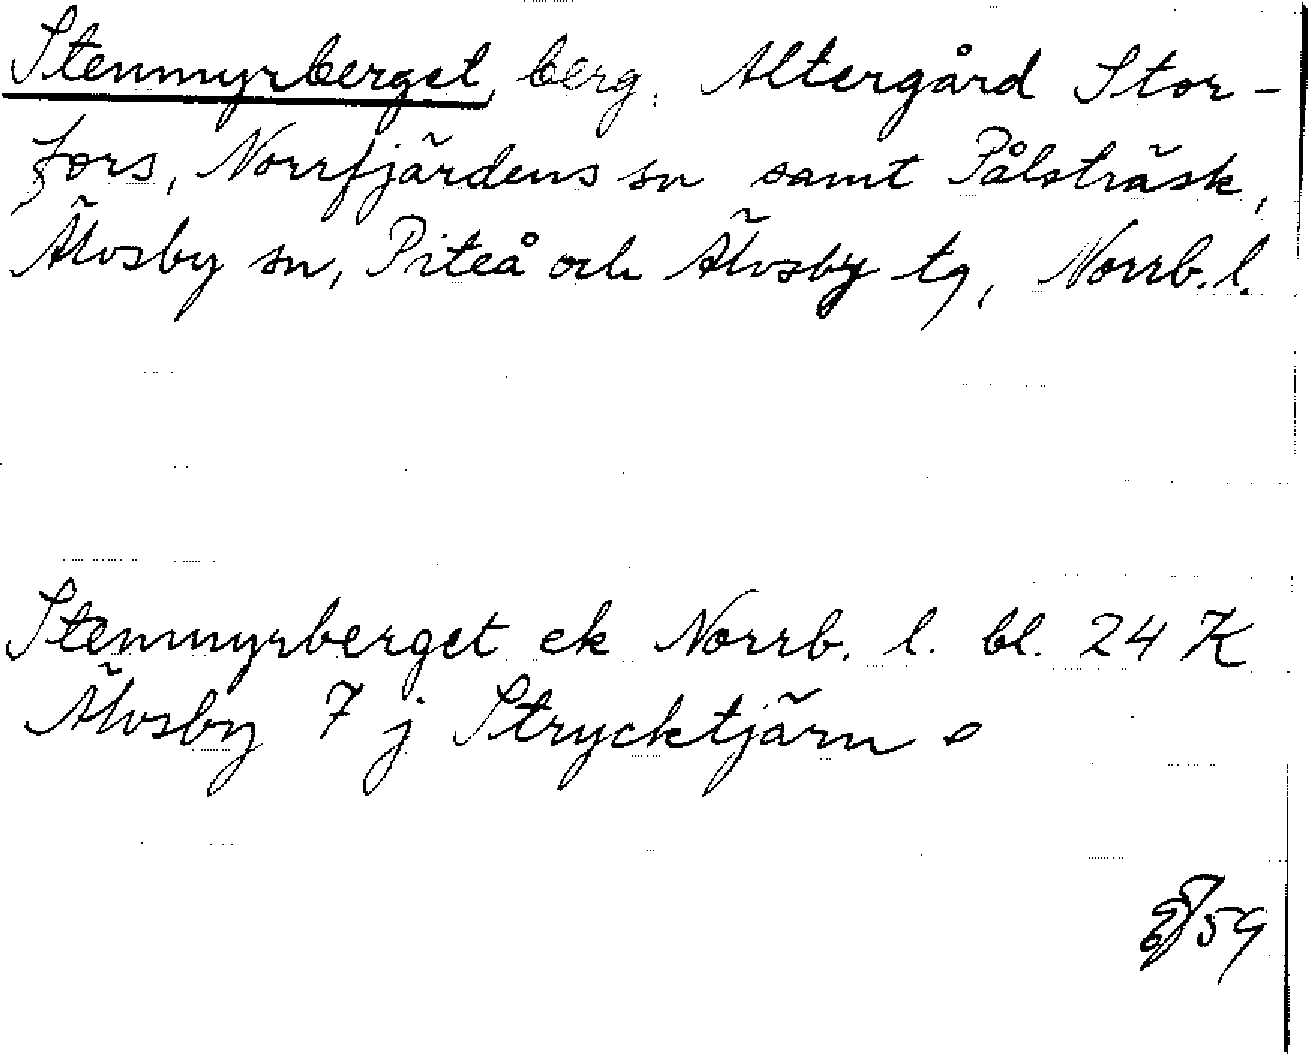 Stenmyrberget, berg, Altergård Stor-
fors, Norrfjärdens sn samt Pålsträsk,
Älvsby sn, Piteå och Älvsby tg, Norrb. l.
Stenmyrberget ek Norrb. l. bl. 24 K
Älvsby 7 j Strycktjärn
59